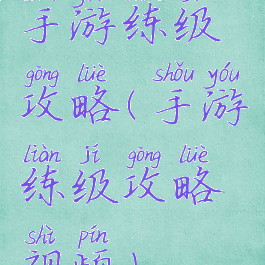 手游练级
gōng lüè shǒu yóu
攻略(手游
liàn jí gōng lüè
练级攻略
shì pín
视频)